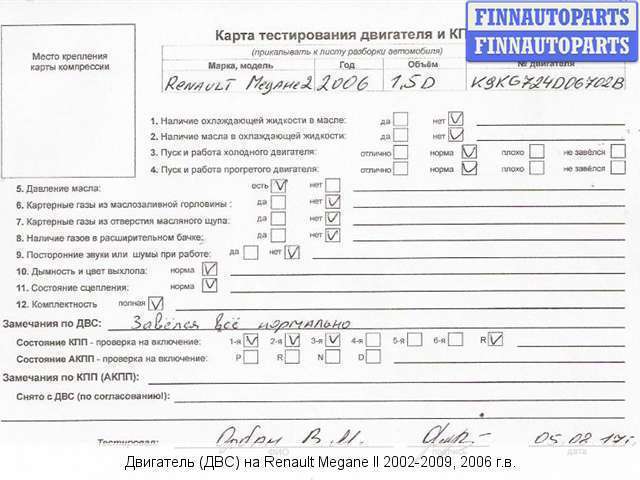 Карта тестирования двигателя и КП
FINNAUTOPARTS
FINNAUTOPARTS
(прикалывать к листу разборки автомобиля)
Место крепления
карты компрессии
Марка, модель Год Объём № двигателя
Renault Megane 2 2006 1,5D K9KG724D06702B
1. Наличие охлаждающей жидкости в масле: да нет
2. Наличие масла в охлаждающей жидкости: да нет
3. Пуск и работа холодного двигателя: отлично норма плохо не завёлся
4. Пуск и работа прогретого двигателя: отлично норма плохо не завёлся
5. Давление масла: есть нет
6. Картерные газы из маслозаливной горловины : да нет
7. Картерные газы из отверстия масляного щупа: да нет
8. Наличие газов в расширительном бачке: да нет
9. Посторонние звуки или шумы при работе: да нет
10. Дымность и цвет выхлопа: норма
11. Состояние сцепления: норма
12. Комплектность полная
Замечания по ДВС: Завёлся всё нормально
Состояние КПП - проверка на включение: 1-я 2-я 3-я 4-я 5-я 6-я R
Состояние АКПП - проверка на включение: P R N D
Замечания по КПП (АКПП):
Снято с ДВС (по согласованию!):
Тестировал: В.И. 05.02.17г.
ФИО подпись дата
Двигатель (ДВС) на Renault Megane II 2002-2009, 2006 г.в.